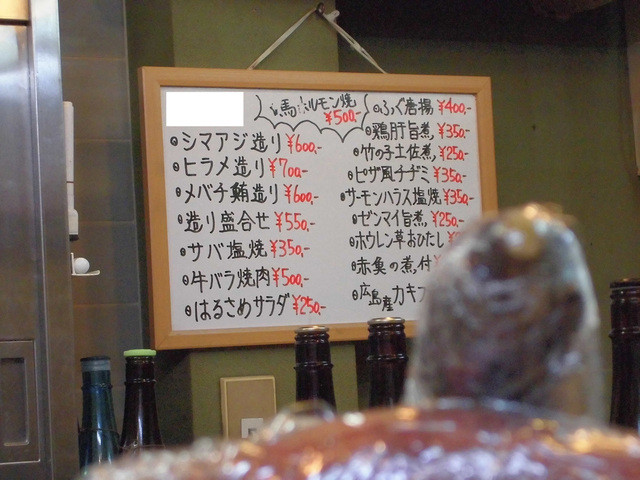 馬ホルモン焼
¥500,-
シマアジ造り ¥600,-
ヒラメ造り ¥700,-
メバチ鮪造り ¥600,-
造り盛合せ ¥550,-
サバ塩焼 ¥350,-
牛バラ焼肉 ¥500,-
はるさめサラダ ¥250,-
ふぐ唐揚 ¥400,-
鶏肝旨煮 ¥350,-
竹の子土佐煮 ¥250,-
ピザ風チヂミ ¥350,-
サーモンハラス塩焼 ¥350,-
ゼンマイ旨煮 ¥250,-
ホウレン草おひたし
赤魚の煮付
広島産カキフ